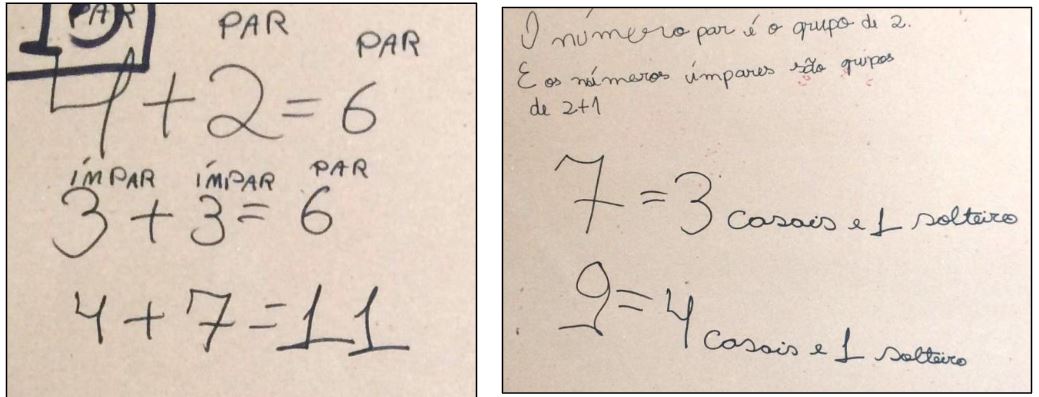 PAR PAR PAR
4 + 2 = 6
ÍMPAR ÍMPAR PAR
3 + 3 = 6
4 + 7 = 11
O número par é o grupo de 2.
E os números ímpares são grupos
de 2+1
7 = 3 casais e 1 solteiro
9 = 4 casais e 1 solteiro